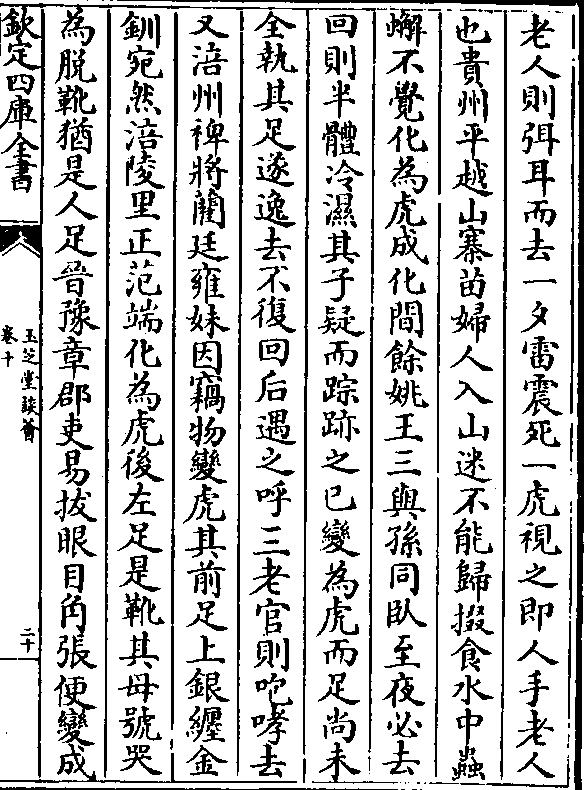 老人則弭耳而去一夕雷震死一虎視之即人手老人
也貴州平越山寨苗婦人入山迷不能歸掇食水中蟲
蠏不覺化為虎成化間餘姚王三與孫同臥至夜必去
回則半體冷濕其子疑而踪跡之已變為虎而足尚未
全執其足遂逸去不復回后遇之呼三老官則咆哮去
又涪州裨將藺廷雍妹因竊物變虎其前足上銀纒金
釧宛然涪陵里正范端化為虎後左足是靴其母號哭
為脱靴猶是人足晉豫章郡吏易拔眼目角張便變成
欽定四庫全書
玉芝堂談薈
卷十
二十